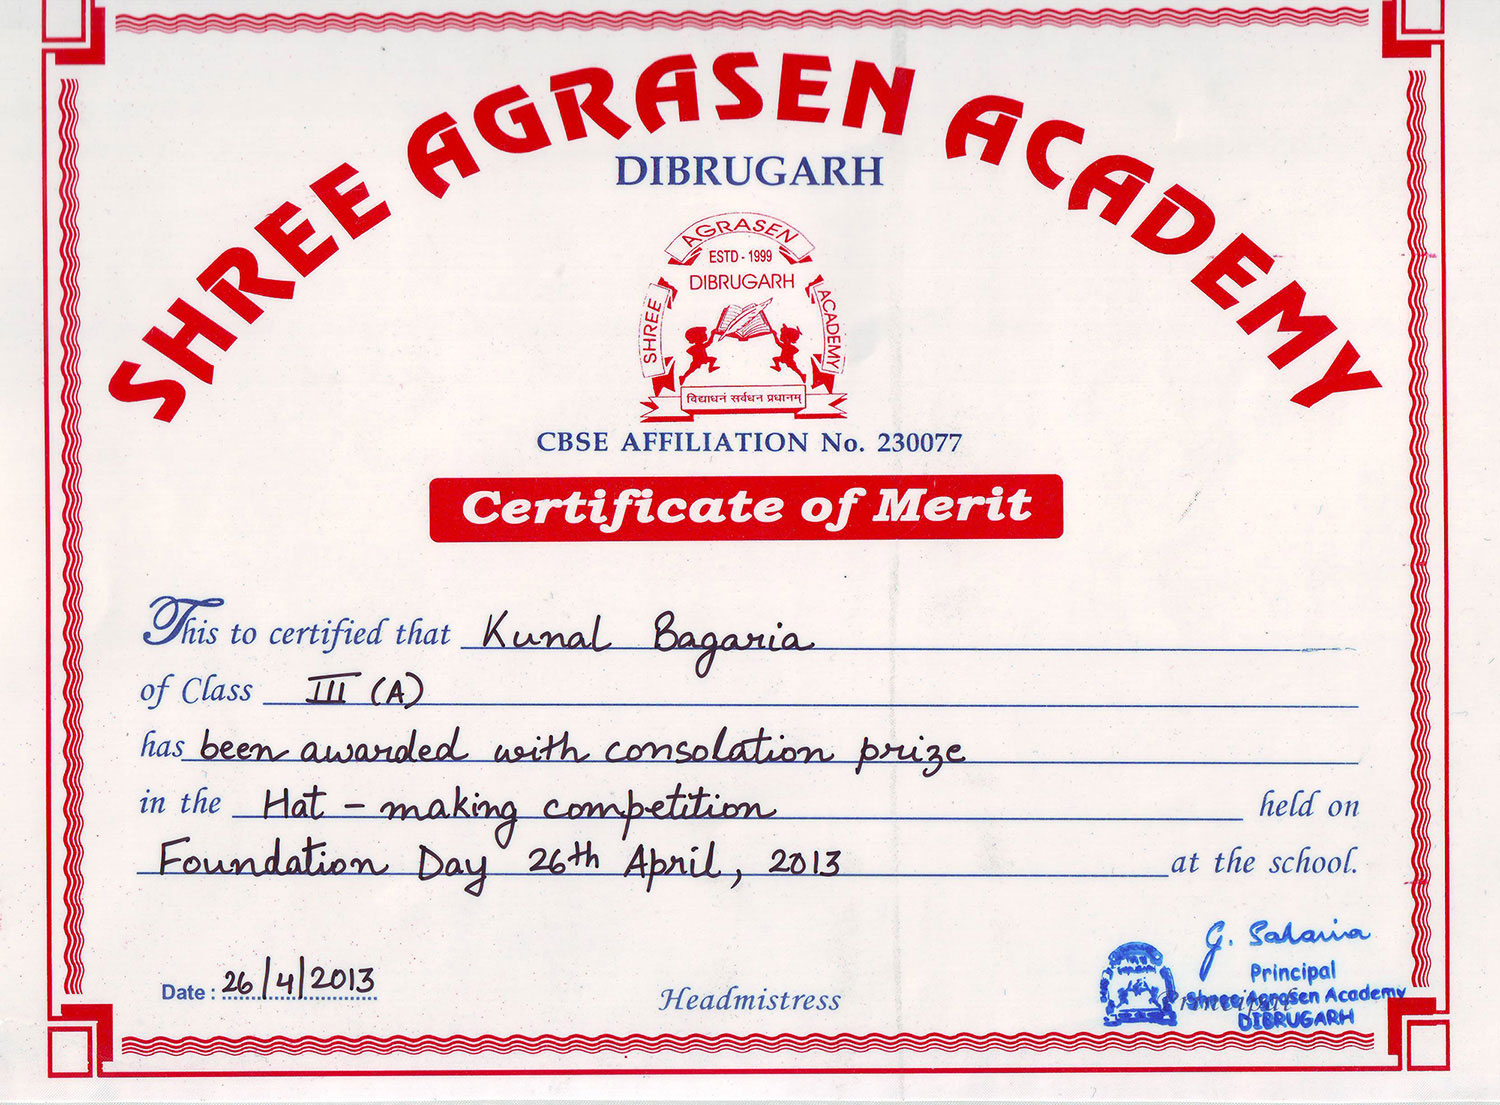 SHREE AGRASEN ACADEMY
DIBRUGARH
SHREE AGRASEN ACADEMY
ESTD - 1999
DIBRUGARH
विद्याधनं सर्वधन प्रधानम्
CBSE AFFILIATION No. 230077
Certificate of Merit
This to certified that Kunal Bagaria
of Class III (A)
has been awarded with consolation prize
in the Hat - making competition held on
Foundation Day 26th April, 2013 at the school.
G. Saharia
Date : 26/4/2013
Headmistress
Principal
Principal
Shree Agrasen Academy
DIBRUGARH